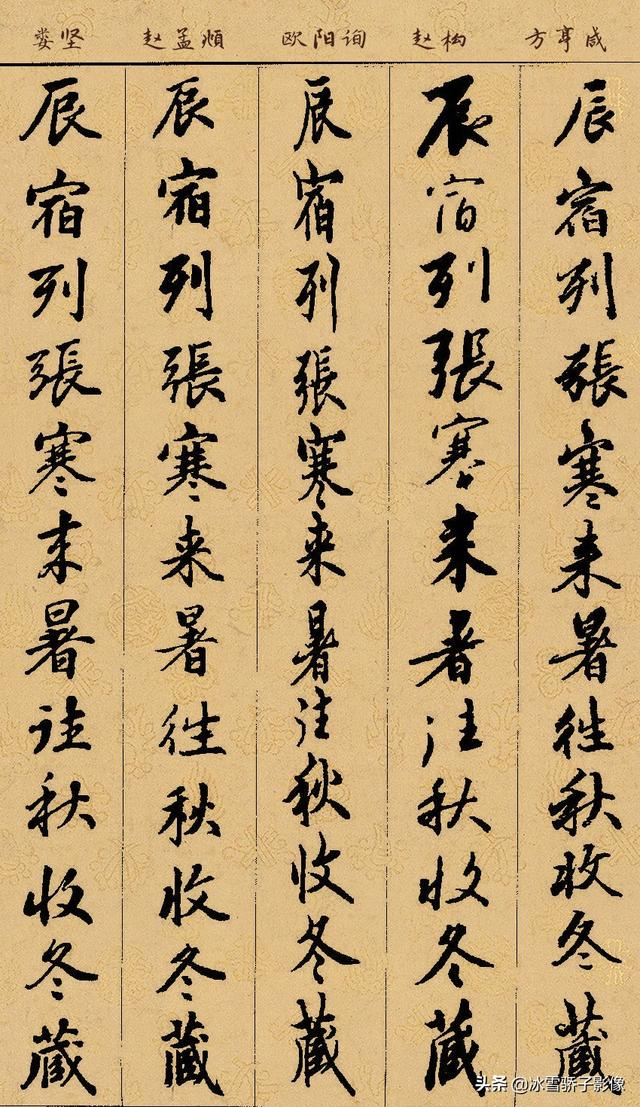 娄坚 赵孟頫 欧阳询 赵构 方亨咸
辰宿列張寒来暑往秋收冬蔵
辰宿列張寒来暑往秋收冬蔵
辰宿列張寒来暑往秋收冬蔵
辰宿列張寒来暑往秋收冬蔵
辰宿列張寒来暑往秋收冬蔵
头条 @冰雪骄子影像